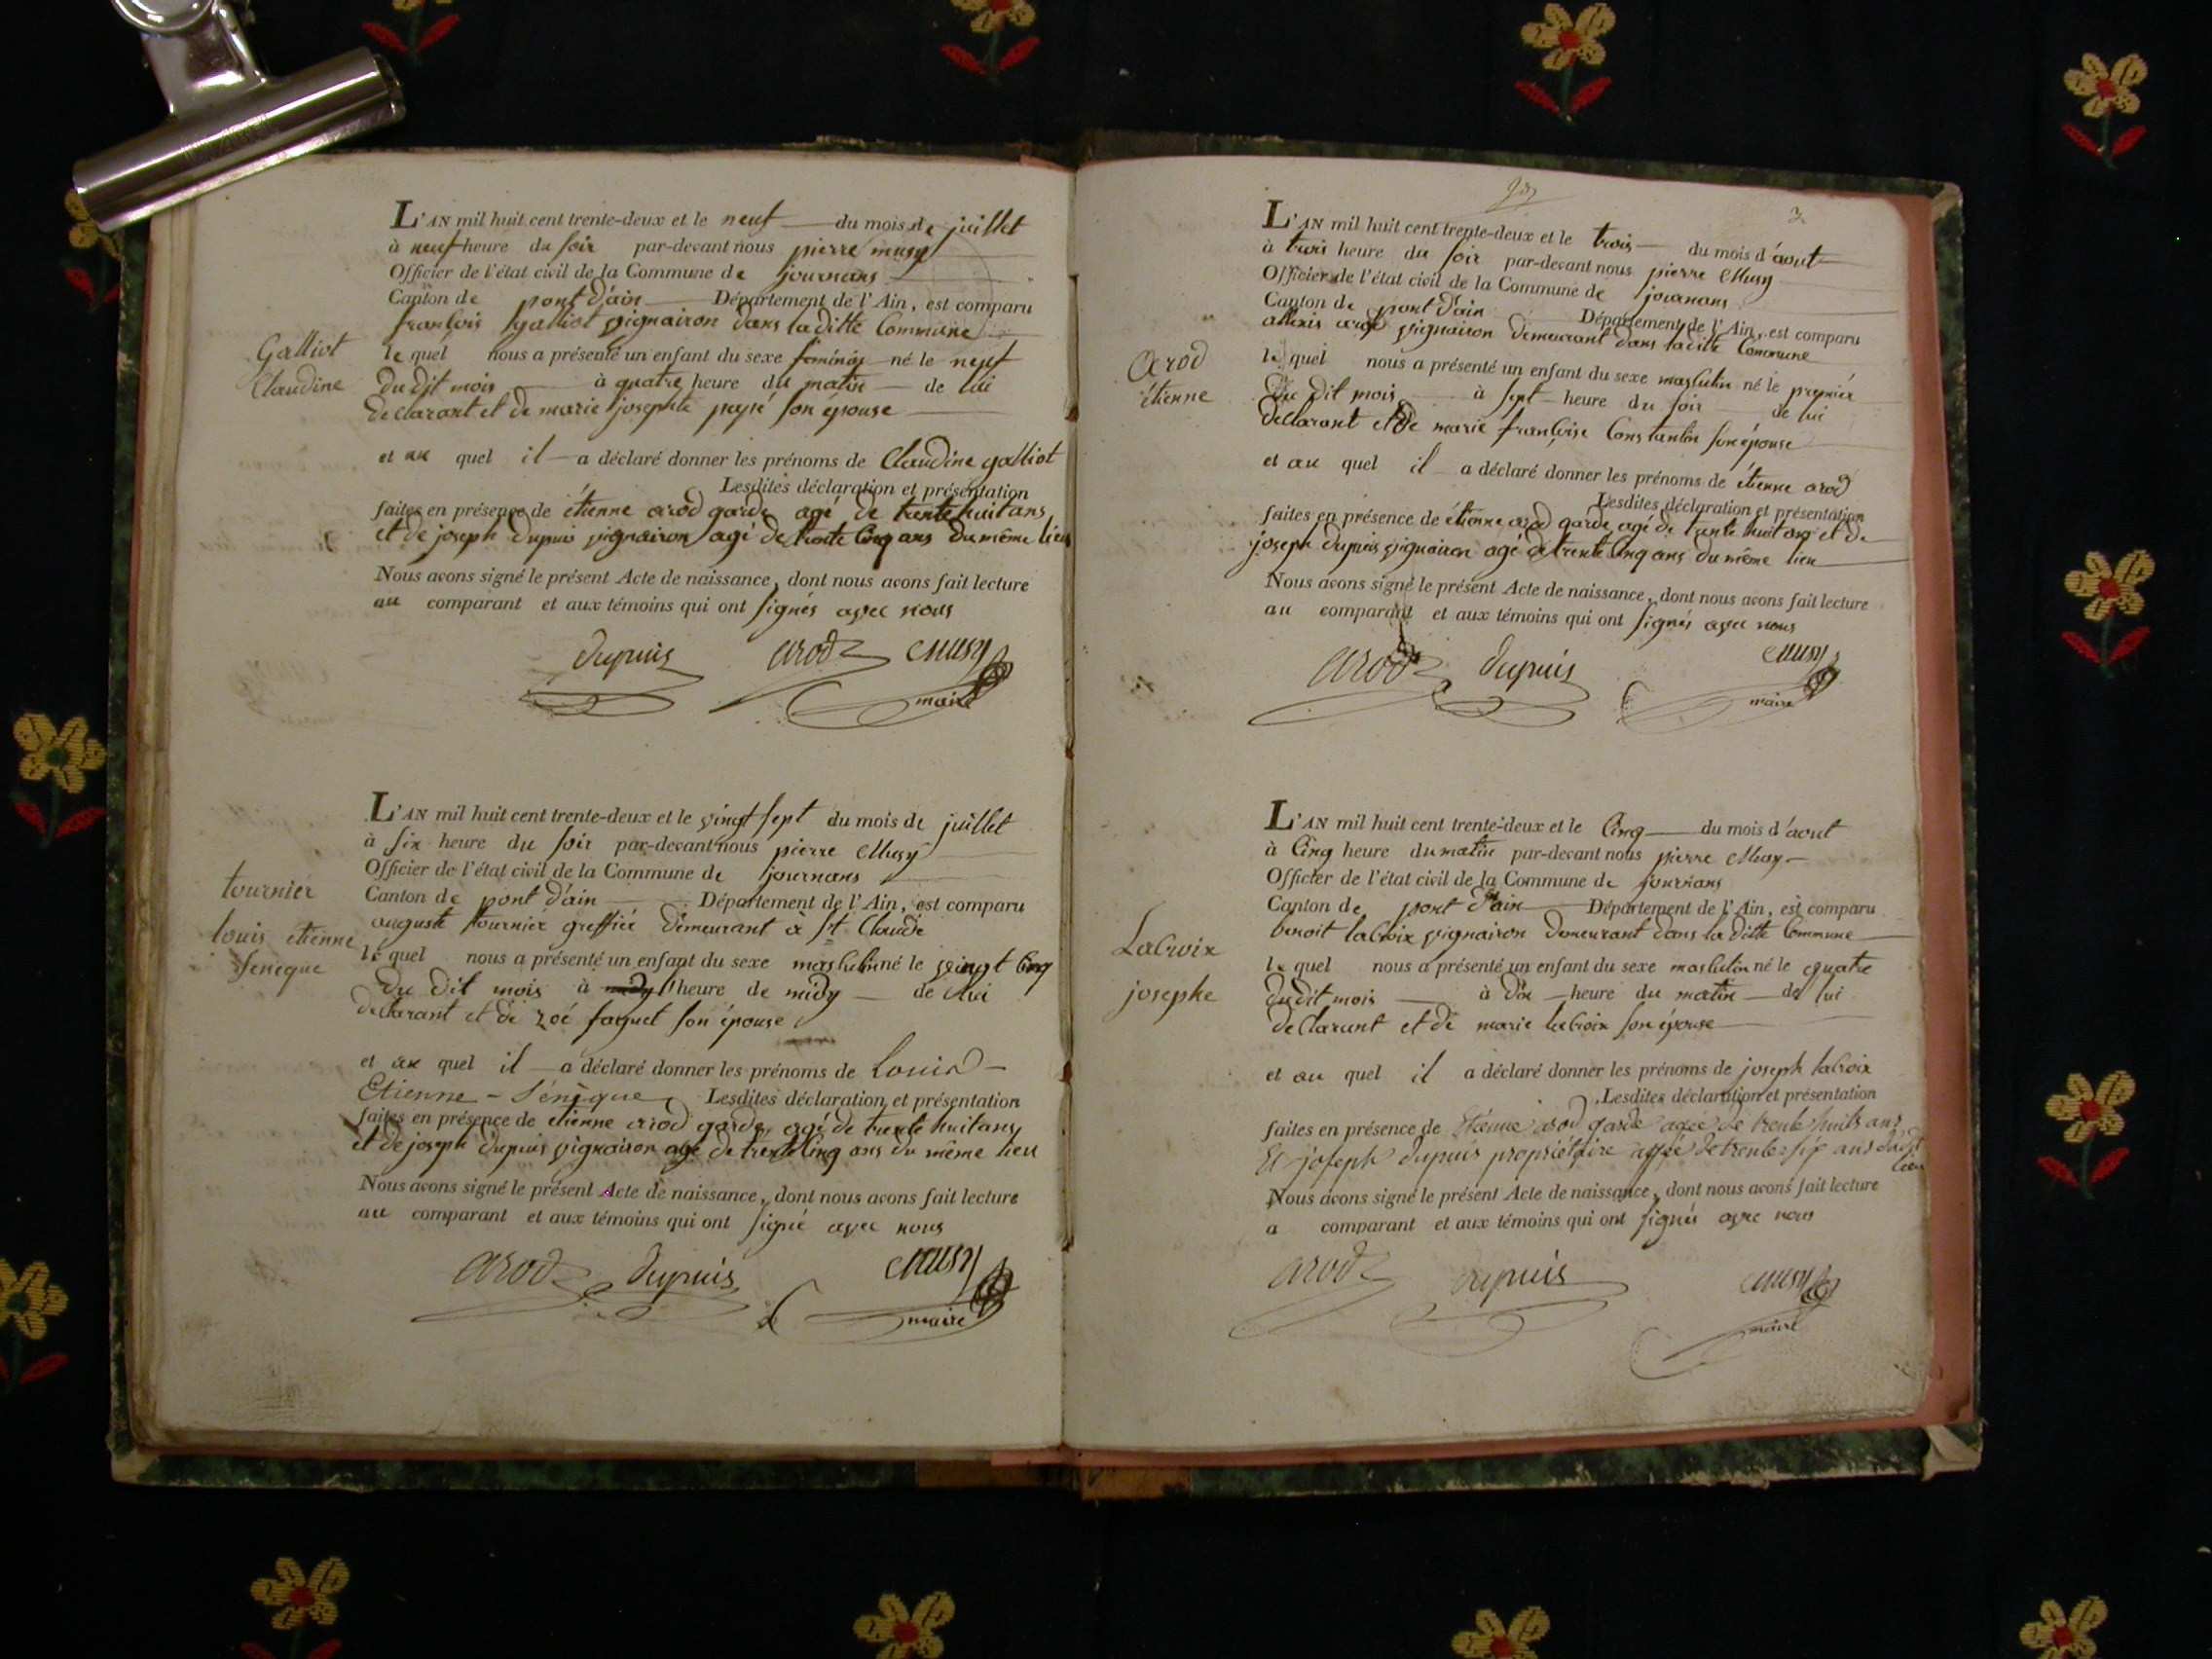 L'AN mil huit cent trente-deux et le neuf du mois de juillet
à neuf heure du soir par-devant nous pierre musy
Officier de l'état civil de la Commune de journans
Canton de pont d'ain Département de l'Ain, est comparu
francois galliot vignairon dans la ditte Commune
Galliot
Claudine
le quel nous a présenté un enfant du sexe feminin né le neuf
du dit mois à quatre heure du matin de lui
declarant et de marie josephte son épouse
et au quel il a déclaré donner les prénoms de Claudine galliot
Lesdites déclaration et présentation
faites en présence de étienne arod garde agé de trente huit ans
et de joseph dupuis vignairon agé de trente cinq ans du même lieu
Nous avons signé le présent Acte de naissance, dont nous avons fait lecture
au comparant et aux témoins qui ont signés avec nous
dupuis arod Musy
maire
L'AN mil huit cent trente-deux et le vingt sept du mois de juillet
à six heure du soir par-devant nous pierre Musy
Officier de l'état civil de la Commune de journans
Canton de pont d'ain Département de l'Ain, est comparu
auguste tournier greffier demeurant à st Claude
tournier
louis etienne
senèque
le quel nous a présenté un enfant du sexe masculin né le vingt cinq
du dit mois à midy heure de midy de lui
declarant et de zoé faguet son épouse
et au quel il a déclaré donner les prénoms de Louis
Etienne - Sénèque Lesdites déclaration et présentation
faites en présence de etienne arod garde agé de trente huit ans
et de joseph dupuis vignairon agé de trente cinq ans du même lieu
Nous avons signé le présent Acte de naissance, dont nous avons fait lecture
au comparant et aux témoins qui ont signé avec nous
arod dupuis Musy
maire
3
L'AN mil huit cent trente-deux et le trois du mois d'aout
à trois heure du soir par-devant nous pierre Musy
Officier de l'état civil de la Commune de journans
Canton de pont d'ain Département de l'Ain, est comparu
allexis arod vignairon demeurant dans la ditte Commune
arod
étienne
le quel nous a présenté un enfant du sexe masculin né le premier
du dit mois à sept heure du soir de lui
declarant et de marie francoise Constantin son épouse
et au quel il a déclaré donner les prénoms de étienne arod
Lesdites déclaration et présentation
faites en présence de étienne arod garde agé de trente huit ans et de
joseph dupuis vignairon agé de trente cinq ans du même lieu
Nous avons signé le présent Acte de naissance, dont nous avons fait lecture
au comparant et aux témoins qui ont signés avec nous
arod dupuis Musy
maire
L'AN mil huit cent trente-deux et le cinq du mois d'aout
à cinq heure du matin par-devant nous pierre Musy
Officier de l'état civil de la Commune de journans
Canton de pont d'ain Département de l'Ain, est comparu
benoit lacroix vignairon demeurant dans la ditte Commune
Lacroix
josephe
le quel nous a présenté un enfant du sexe masculin né le quatre
du dit mois à dix heure du matin de lui
declarant et de marie lacroix son épouse
et au quel il a déclaré donner les prénoms de joseph lacroix
Lesdites déclaration et présentation
faites en présence de Etienne arod garde agée de trente huits ans
Et joseph dupuis propriétaire de trente six ans dudt
lieu
Nous avons signé le présent Acte de naissance, dont nous avons fait lecture
a comparant et aux témoins qui ont signés avec nous
arod dupuis Musy
maire